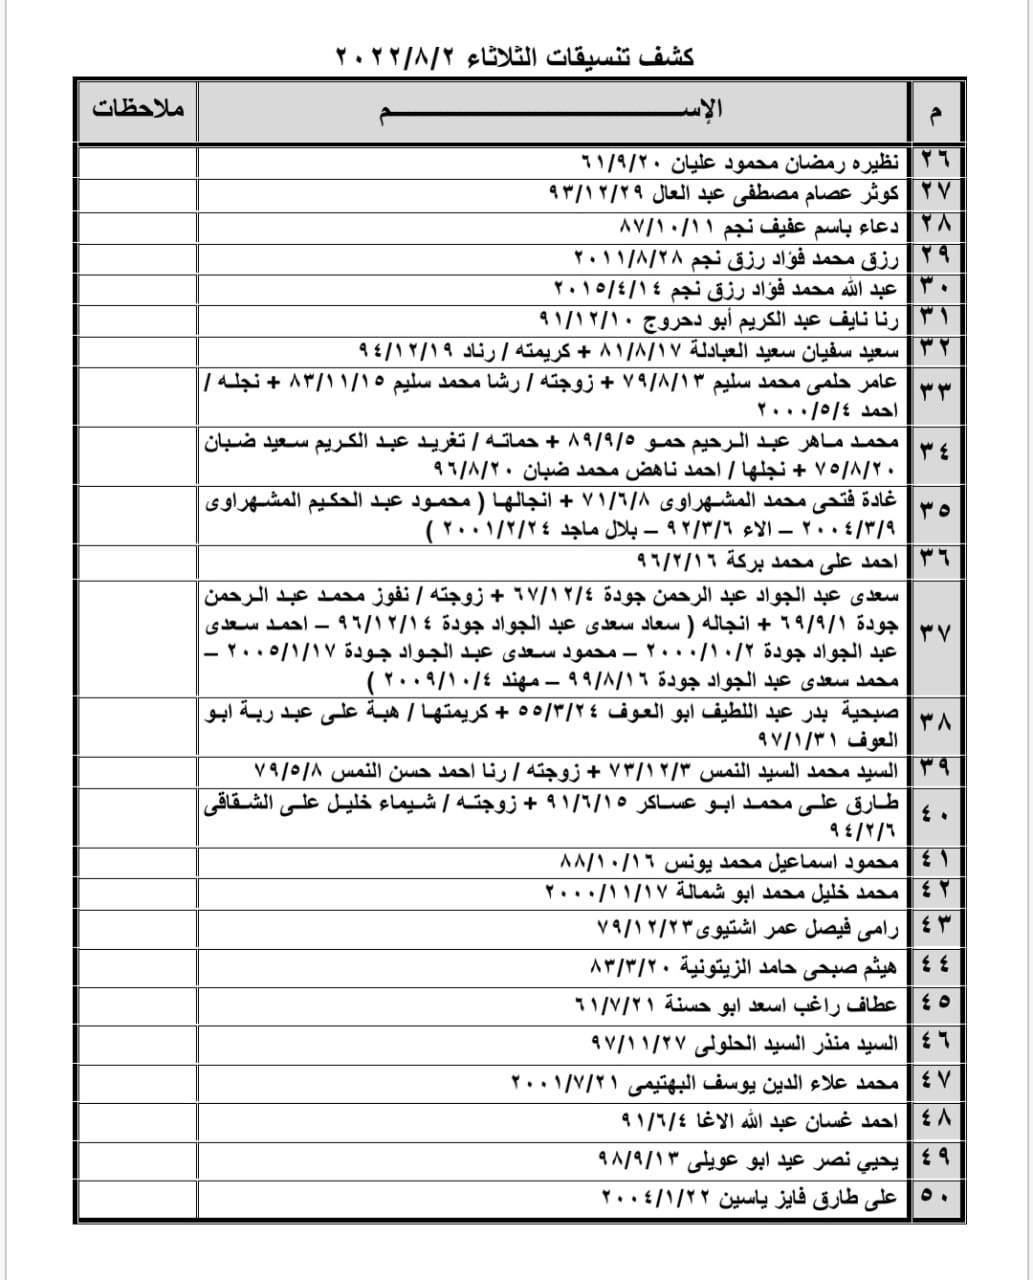 كشف تنسيقات الثلاثاء ٢٠٢٢/٨/٢
م الإســـــــــم ملاحظات
٢٦ نظيره رمضان محمود عليان ٦١/٩/٢٠
٢٧ كوثر عصام مصطفى عبد العال ٩٣/١٢/٢٩
٢٨ دعاء باسم عفيف نجم ٨٧/١٠/١١
٢٩ رزق محمد فؤاد رزق نجم ٢٠١١/٨/٢٨
٣٠ عبد الله محمد فؤاد رزق نجم ٢٠١٥/٤/١٤
٣١ رنا نايف عبد الكريم أبو دحروج ٩١/١٢/١٠
٣٢ سعيد سفيان سعيد العبادلة ٨١/٨/١٧ + كريمته / رناد ٩٤/١٢/١٩
٣٣ عامر حلمى محمد سليم ٧٩/٨/١٣ + زوجته / رشا محمد سليم ٨٣/١١/١٥ + نجله /
احمد ٢٠٠٠/٥/٤
٣٤ محمد ماهر عبد الرحيم حمو ٨٩/٩/٥ + حماته / تغريد عبد الكريم سعيد ضبان
٧٥/٨/٢٠ + نجلها / احمد ناهض محمد ضبان ٩٦/٨/٢٠
٣٥ غادة فتحى محمد المشهراوى ٧١/٦/٨ + انجالها ( محمود عبد الحكيم المشهراوى
٢٠٠٤/٣/٩ – الاء ٩٢/٣/٦ – بلال ماجد ٢٠٠١/٢/٢٤ )
٣٦ احمد على محمد بركة ٩٦/٢/١٦
٣٧ سعدى عبد الجواد عبد الرحمن جودة ٦٧/١٢/٤ + زوجته / نفوز محمد عبد الرحمن
جودة ٦٩/٩/١ + انجاله ( سعاد سعدى عبد الجواد جودة ٩٦/١٢/١٤ – احمد سعدى
عبد الجواد جودة ٢٠٠٠/١٠/٢ – محمود سعدى عبد الجواد جودة ٢٠٠٥/١/١٧ –
محمد سعدى عبد الجواد جودة ٩٩/٨/١٦ – مهند ٢٠٠٩/١٠/٤ )
٣٨ صبحية بدر عبد اللطيف ابو العوف ٥٥/٣/٢٤ + كريمتها / هبة على عبد ربة ابو
العوف ٩٧/١/٣١
٣٩ السيد محمد السيد النمس ٧٣/١٢/٣ + زوجته / رنا احمد حسن النمس ٧٩/٥/٨
٤٠ طارق على محمد ابو عساكر ٩١/٦/١٥ + زوجته / شيماء خليل على الشقاقى
٩٤/٢/٦
٤١ محمود اسماعيل محمد يونس ٨٨/١٠/١٦
٤٢ محمد خليل محمد ابو شمالة ٢٠٠٠/١١/١٧
٤٣ رامى فيصل عمر اشتيوى٧٩/١٢/٢٣
٤٤ هيثم صبحى حامد الزيتونية ٨٣/٣/٢٠
٤٥ عطاف راغب اسعد ابو حسنة ٦١/٧/٢١
٤٦ السيد منذر السيد الحلولى ٩٧/١١/٢٧
٤٧ محمد علاء الدين يوسف البهتيمى ٢٠٠١/٧/٢١
٤٨ احمد غسان عبد الله الاغا ٩١/٦/٤
٤٩ يحيي نصر عيد ابو عويلى ٩٨/٩/١٣
٥٠ على طارق فايز ياسين ٢٠٠٤/١/٢٢